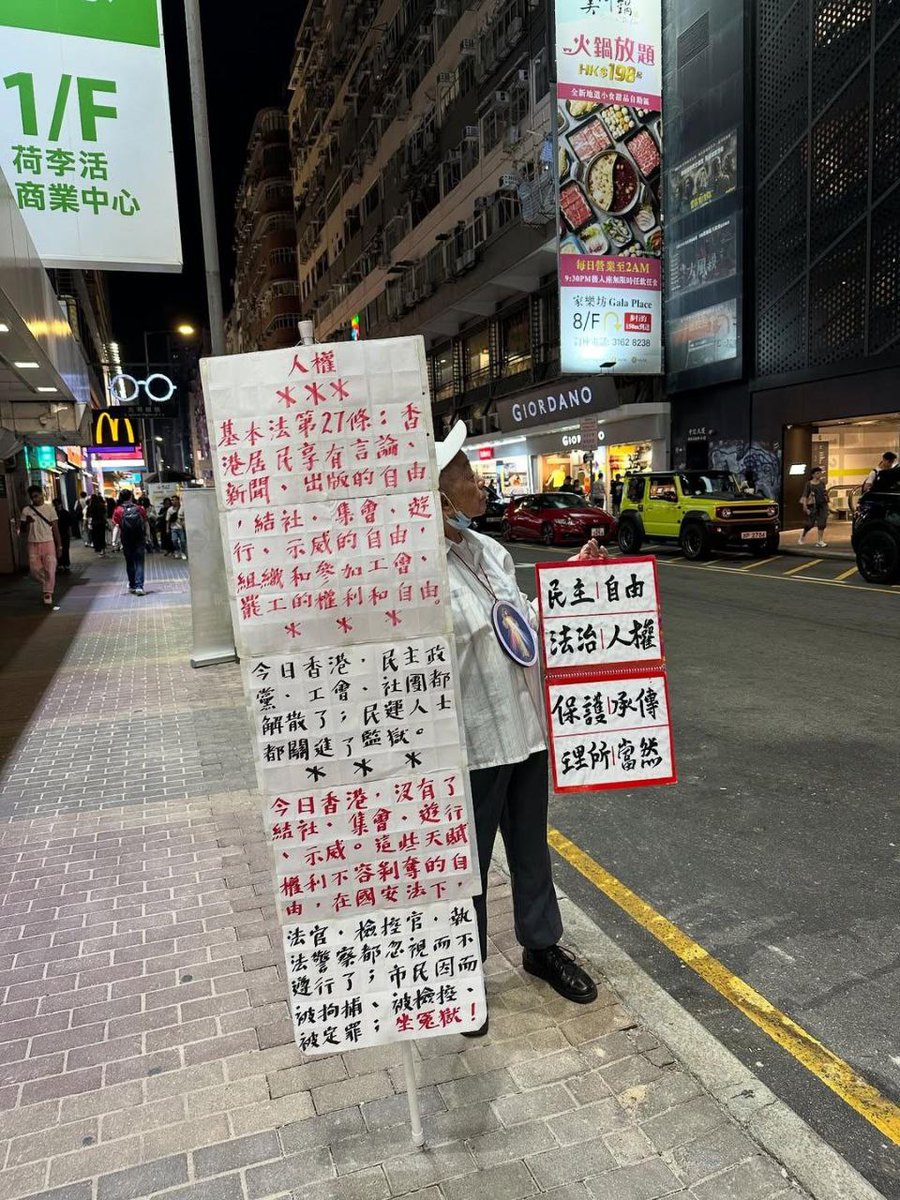 1/F
荷李活
商業中心
火鍋放題
HK$198起
全新地道小食甜品自助區
每日營業至2AM
9:30PM後入座無限時任飲任食
家樂坊 Gala Place
8/F
3162 8238
GIORDANO
GIORDANO
人權
***
基本法第27條:香
港居民享有言論、
新聞、出版的自由
,結社、集會、遊
行、示威的自由,
組織和參加工會、
罷工的權利和自由。
* * *
今日香港,民主政
黨、工會、社團都
解散了;民運人士
都關進了監獄。
* * *
今日香港,沒有了
結社、集會、遊行
、示威。這些天賦
權利不容剝奪的自
由,在國安法下,
法官、檢控官、執
法警察都忽視而不
遵行了;市民因而
被拘捕、被檢控、
被定罪;坐冤獄!
民主|自由
法治|人權
保護|承傳
理所|當然